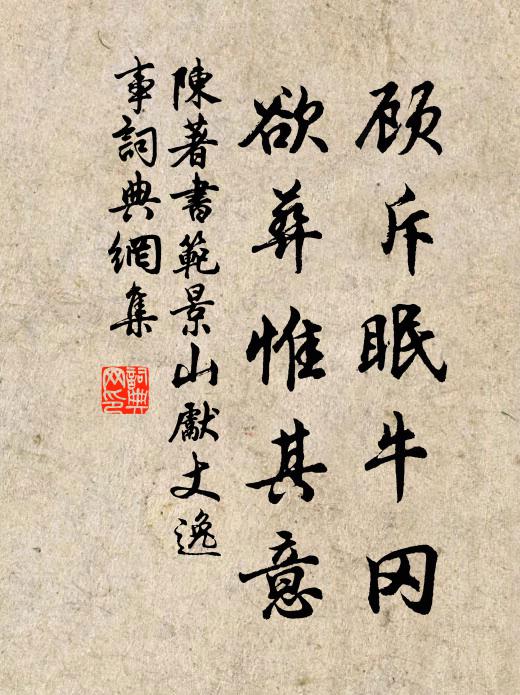 顾斥眠牛冈
欲葬惟其意
陳著書範景山獻丈逸
事詞典網集
詞典網印